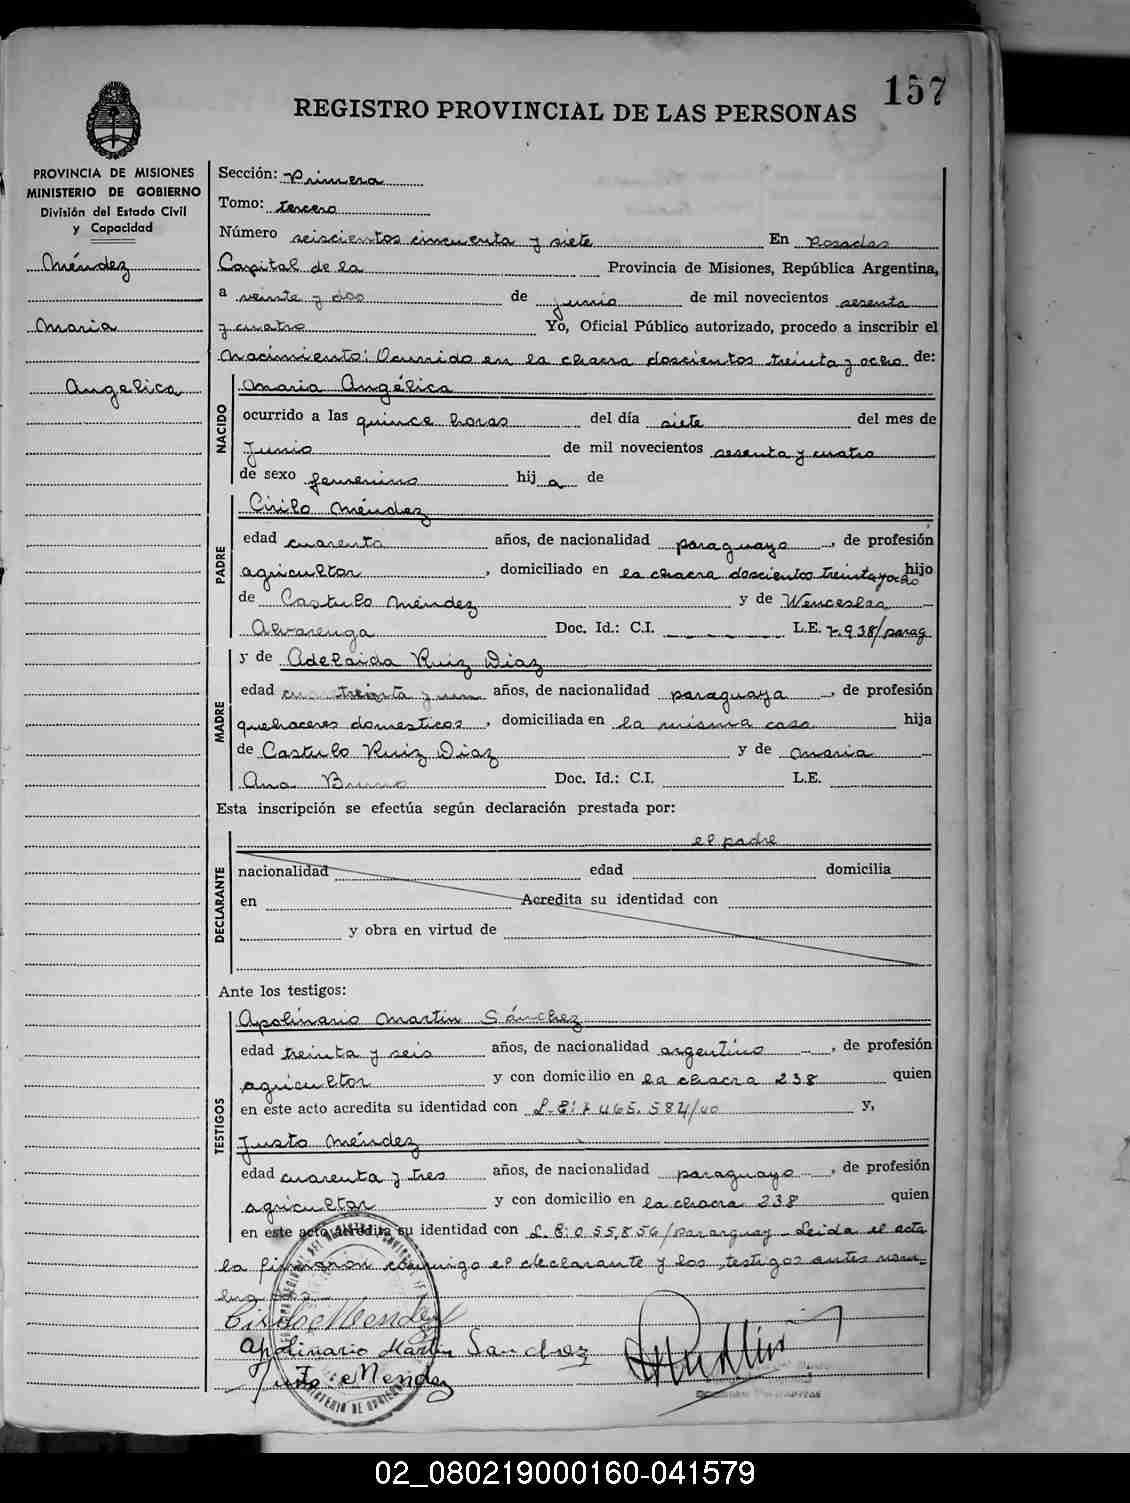 157
REGISTRO PROVINCIAL DE LAS PERSONAS
PROVINCIA DE MISIONES
MINISTERIO DE GOBIERNO
División del Estado Civil
y Capacidad
Méndez
Maria
Angelica
Sección: Primera
Tomo: tercero
Número seiscientos cincuenta y siete En Posadas
Capital de la Provincia de Misiones, República Argentina,
a veinte y dos de junio de mil novecientos sesenta
y cuatro Yo, Oficial Público autorizado, procedo a inscribir el
Nacimiento: Ocurrido en la chacra doscientos treinta y ocho de:
NACIDO
Maria Angélica
ocurrido a las quince horas del día siete del mes de
Junio de mil novecientos sesenta y cuatro
de sexo femenino hij a de
PADRE
Cirilo Méndez
edad cuarenta años, de nacionalidad paraguayo, de profesión
agricultor, domiciliado en la chacra doscientos treinta y ocho hijo
de Castulo Méndez y de Wenceslaa
Alvarenga Doc. Id.: C.I. L.E. 7.938/parag
MADRE
y de Adelaida Ruiz Diaz
edad treinta y un años, de nacionalidad paraguaya, de profesión
quehaceres domesticos, domiciliada en la misma casa hija
de Castulo Ruiz Diaz y de Maria
Ana Doc. Id.: C.I. L.E.
Esta inscripción se efectúa según declaración prestada por:
DECLARANTE
el padre
nacionalidad edad domicilia
en Acredita su identidad con
y obra en virtud de
Ante los testigos:
TESTIGOS
Apolinario Martin Sánchez
edad treinta y seis años, de nacionalidad argentino, de profesión
agricultor y con domicilio en la chacra 238 quien
en este acto acredita su identidad con y,
Justo Méndez
edad cuarenta y tres años, de nacionalidad paraguayo, de profesión
agricultor y con domicilio en la chacra 238 quien
en este acto acredita su identidad con L.E: 0.55,856/paraguay Leida el acta
la firmaron conmigo el declarante y los testigos antes
Cirilo Mendez
Apolinario Martin Sanchez
Justo Mendez
02_080219000160-041579